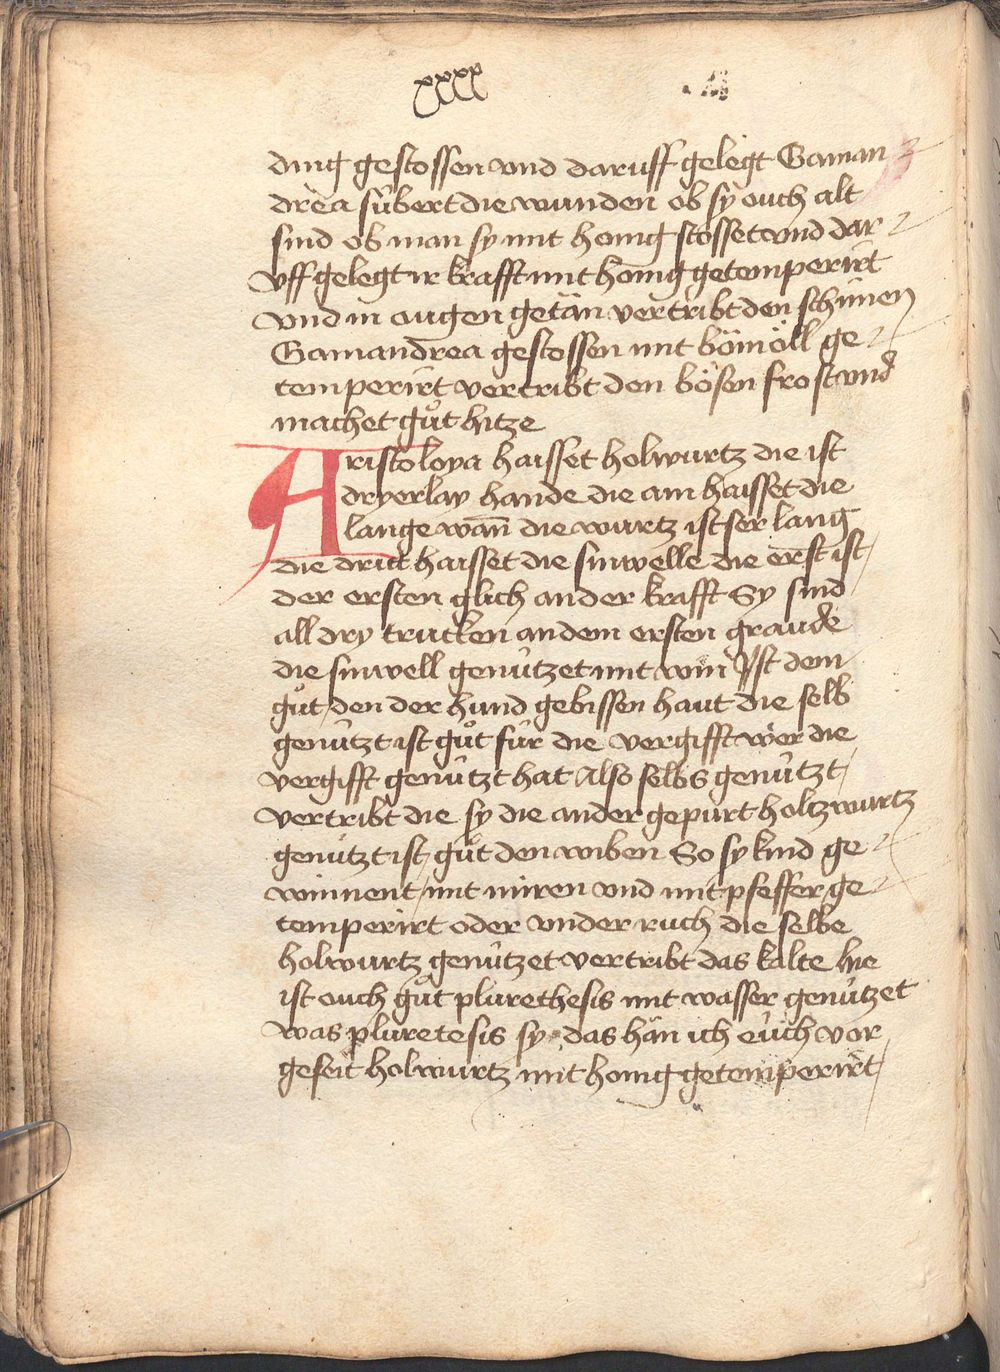 xxxx
ding gestossen vnd daruff gelegt Gaman
drea súbert die wunden ob sy ouch alt
sind ob man sy mit honig stosset vnd dar
vff gelegt ir krafft mit honig getemperirt
vnd in ougen getän vertribt den schinen
Gamandrea gestossen mit bömöll ge
temperirt vertribt den bösen frost vnd
machet gůt hitze
Aristoloya haisset holwurtz die ist
dryerlay hande die ain haisset die
lange wan̄ die wurtz ist ser lang
die dritt haisset die sinwelle die erst ist
der ersten glich an der krafft Sy sind
all dry trucken an dem ersten graude
die sinwell genützet mit win Ist dem
gůt den der hund gebissen haut die selb
genützt ist gůt für die vergifft wer die
vergifft genützt hat Also selbs genützt
vertribt die sy die ander gepurt holtzwurtz
genützt ist gůt den wiben So sy kind ge
winnent mit mirren vnd mit pfeffer ge
temperirt oder vnder ruch die selbe
holwurtz genützet vertribt das kalte we
ist ouch gůt plurethesis mit wasser genützet
was pluretesis sy das hän ich eüch vor
geseit holwurtz mit honig getemperirt